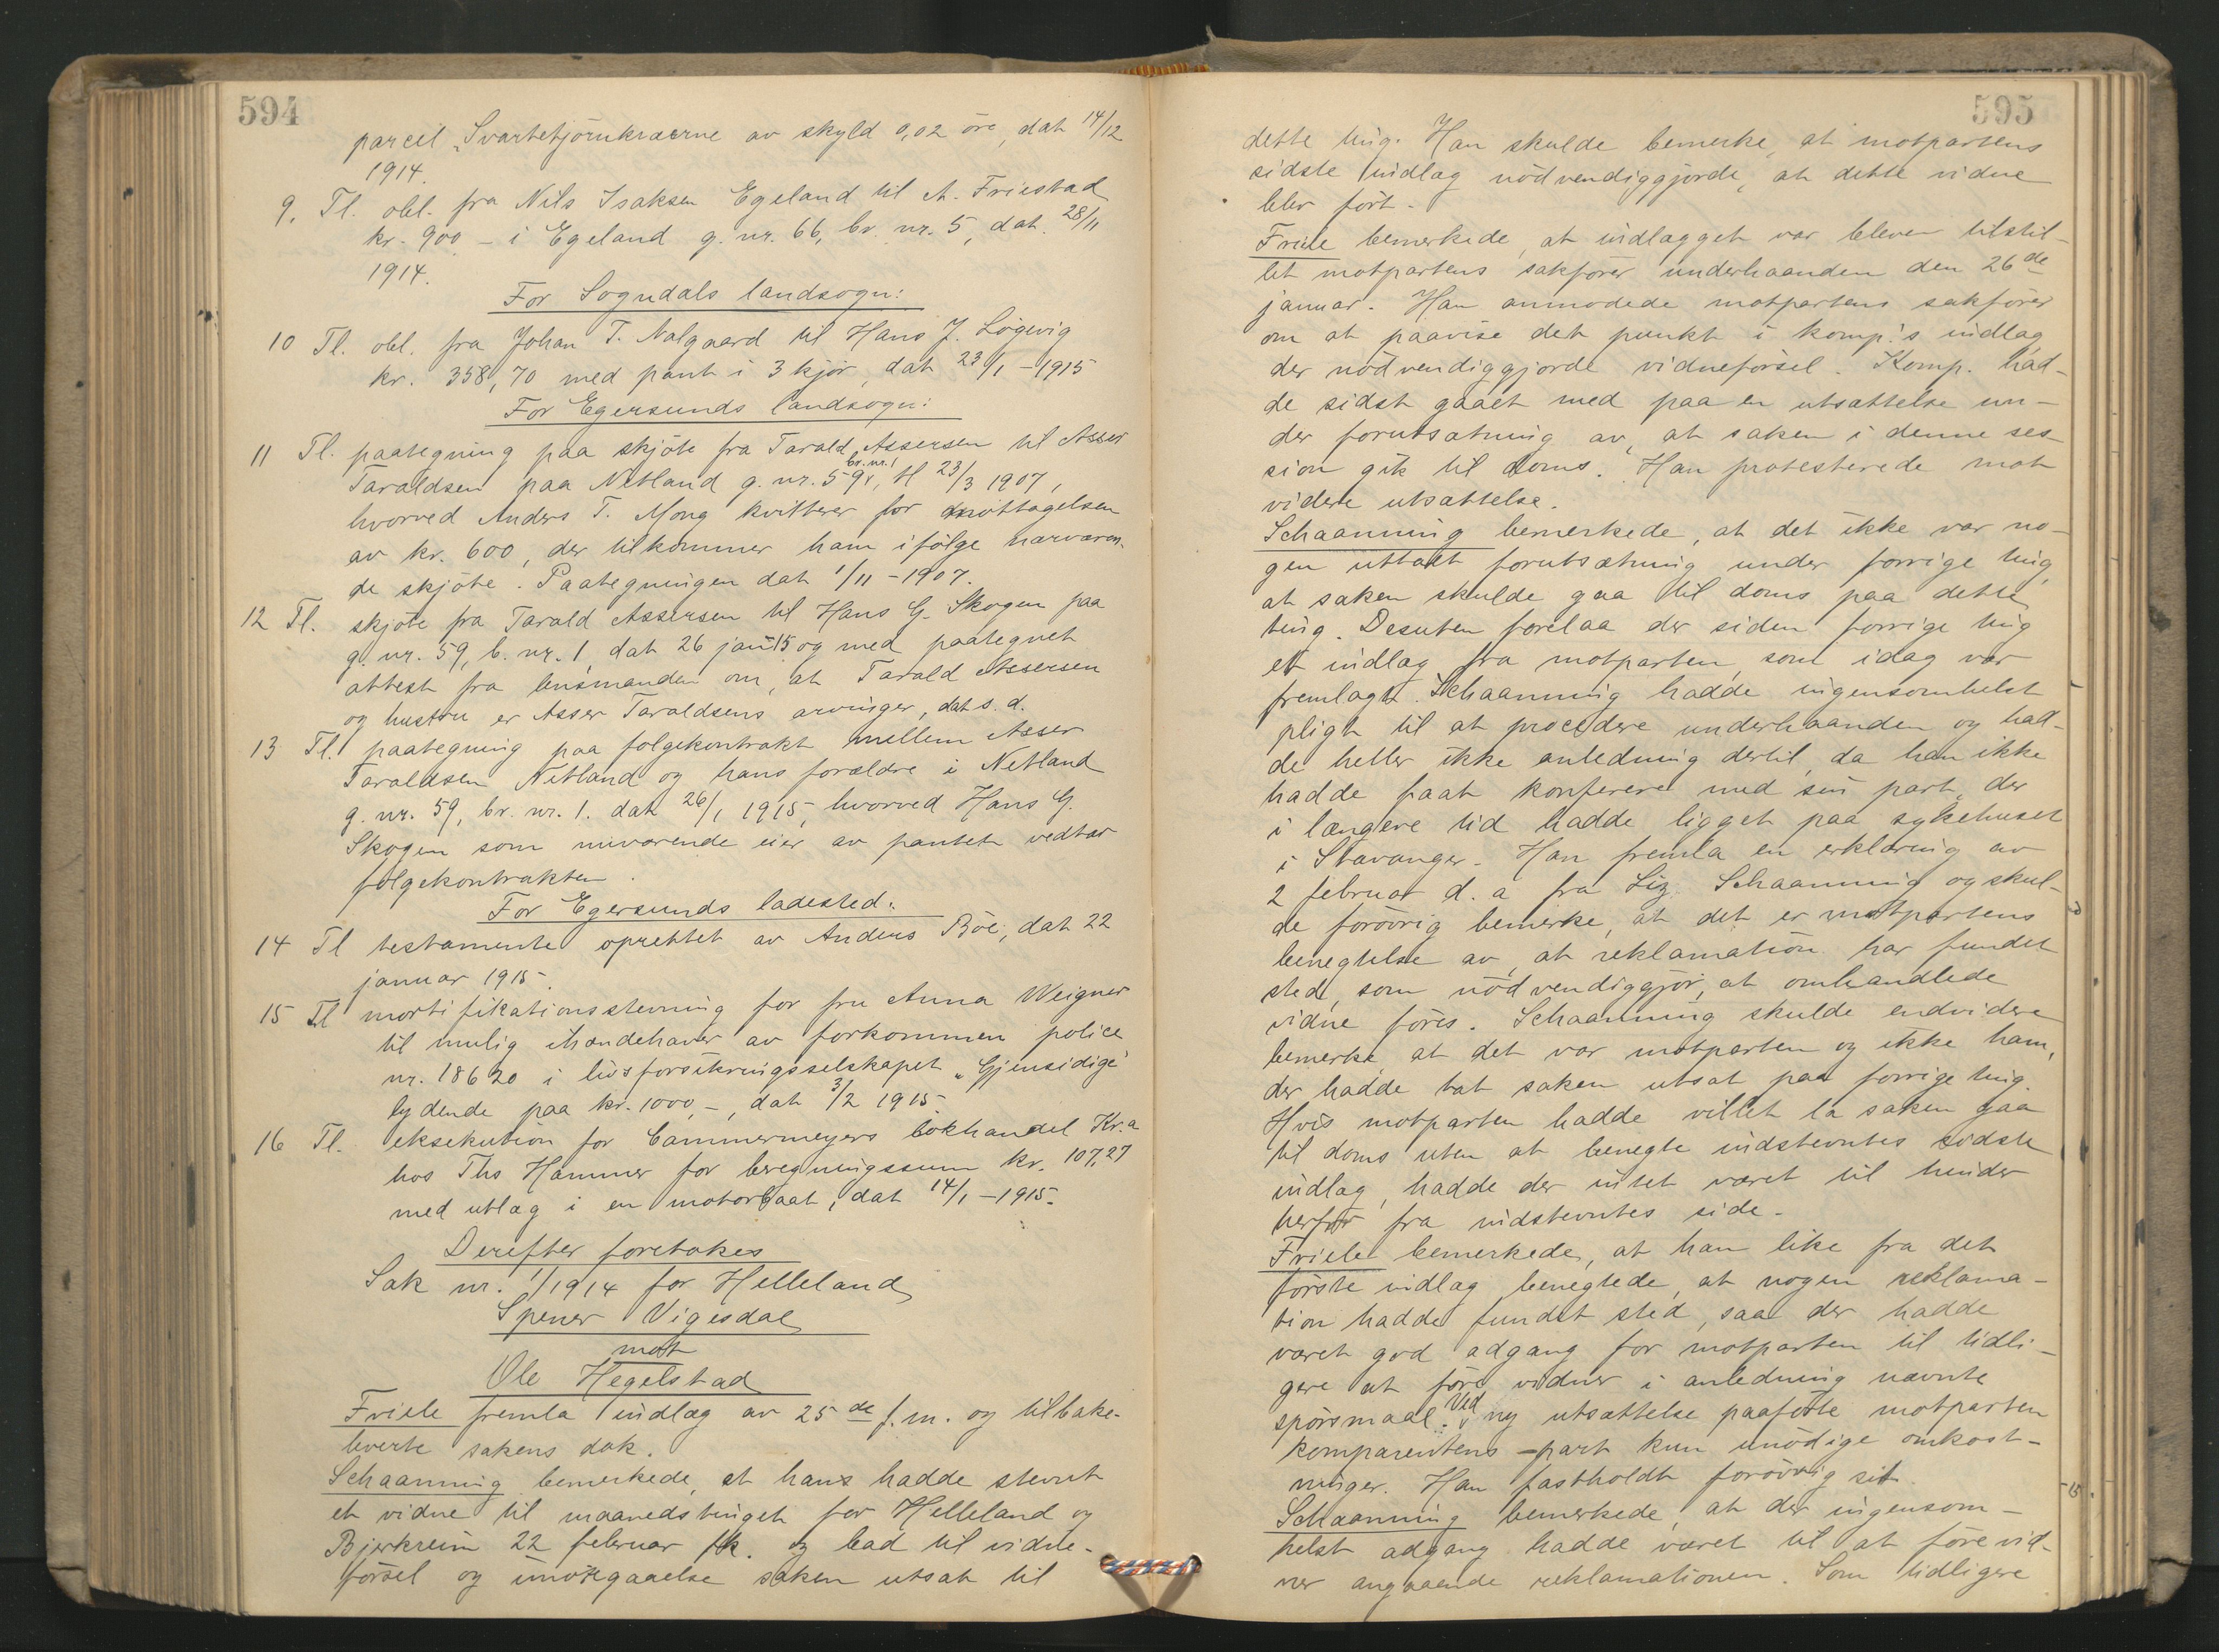 594
parcel „Svartetjörnkraerne av skyld 0,02 öre, dat 14/12
1914.
9. Tl. obl. fra Nils Isaksen Egeland til A. Friestad
kr. 900 – i Egeland g. nr. 66, br. nr. 5, dat. 28/11
1914.
For Sogndals landsogn:
10 Tl. obl. fra Johan T. Nalgaard til Hans J. Lögevig
kr. 358,70 med pant i 3 kjör, dat 23/1 – 1915
For Egersunds landsogn:
11 Tl. paategning paa skjöte fra Tarald Assersen til Asser
Taraldsen paa Netland g. nr. 59, br. nr. 1, tl 23/3 1907,
hvorved Anders T. Mong kvitterer for mottagelsen
av kr. 600, der tilkommer ham ifölge nærværen-
de skjöte. Paategningen dat 1/11 – 1907.
12 Tl. skjöte fra Tarald Assersen til Hans G. Skogen paa
g. nr. 59, b. nr. 1, dat 26 jan 15 og med paategnet
attest fra lensmanden om, at Tarald Assersen
og hustru er Asser Taraldsens arvinger, dat s. d.
13 Tl. paategning paa folgekontrakt mellem Asser
Taraldsen Netland og hans forældre i Netland
g. nr. 59, br. nr. 1. dat 26/1 1915, hvorved Hans G.
Skogen som nuværende eier av pantet vedtar
folgekontrakten.
For Egersunds ladested:
14 Tl testamente oprettet av Anders Böe, dat 22
januar 1915.
15 Tl mortifikationsstevning for fru Anna Weigner
til mulig ihændehaver av forkommen police
nr. 18620 i livsforsikringsselskapet „Gjensidige"
lydende paa kr. 1000,–, dat 3/2 1915
16 Tl. eksekution for Cammermeyers bokhandel Kr.a
hos Ths Hammer for beregningssum kr. 107,27
med utlæg i en motorbaat, dat 14/1 – 1915.
Derefter foretokes
Sak nr. 1/1914 for Helleland
Spener Vigesdal
mot
Ole Hegelstad
Friele fremla indlæg av 25de f. m. og tilbake-
leverte sakens dok.
Schaanning bemerkede, at hans hadde stevnt
et vidne til maanedstinget for Helleland og
Bjerkreim 22 februar fk. og bad til vidne-
försel og imötegaaelse saken utsat til
595
dette ting. Han skulde bemerke, at motpartens
sidste indlæg nödvendiggjorde, at dette vidne
blev fört.
Friele bemerkede, at indlægget var bleven tilstil-
let motpartens sakförer underhaanden den 26de
januar. Han anmodede motpartens sakförer
om at paavise det punkt i komp.'s indlæg,
der nödvendiggjorde vidneförsel. Komp. had-
de sidst gaaet med paa en utsættelse un-
der forutsætning av, at saken i denne ses-
sion gik til doms. Han protesterede mot
videre utsættelse.
Schaanning bemerkede, at det ikke var no-
gen uttalt forutsætning under forrige ting,
at saken skulde gaa til doms paa dette
ting. Desuten forelaa der siden forrige ting
et indlæg fra motparten, som idag var
fremlagt. Schaanning hadde ingensomhelst
pligt til at procedere underhaanden og had-
de heller ikke anledning dertil, da han ikke
hadde faat konferere med sin part, der
i længere tid hadde ligget paa sykehuset
i Stavanger. Han fremla en erklæring av
2 februar d. a fra Liz. Schaanning og skul-
de forövrig bemerke, at det er motpartens
benegtelse av, at reklamation har fundet
sted, som nödvendiggjör, at omhandlede
vidne föres. Schaanning skulde endvidere
bemerke at det var motparten og ikke ham,
der hadde tat saken utsat paa forrige ting.
Hvis motparten hadde villet la saken gaa
til doms uten at benegte indstevntes sidste
indlæg, hadde der intet været til hinder
herfor fra indstevntes side.
Friele bemerkede, at han like fra det
förste indlæg benegtede, at nogen reklama-
tion hadde fundet sted, saa der hadde
været god adgang for motparten til tidli-
gere at före vidner i anledning nævnte
spörsmaal. Ved ny utsættelse paaförte motparten
komparentens part kun unödige omkost-
ninger. Han fastholdt forövrig sit.
Schaanning bemerkede, at der ingensom-
helst adgang hadde været til at före vid-
ner angaaende reklamationen. Som tidligere